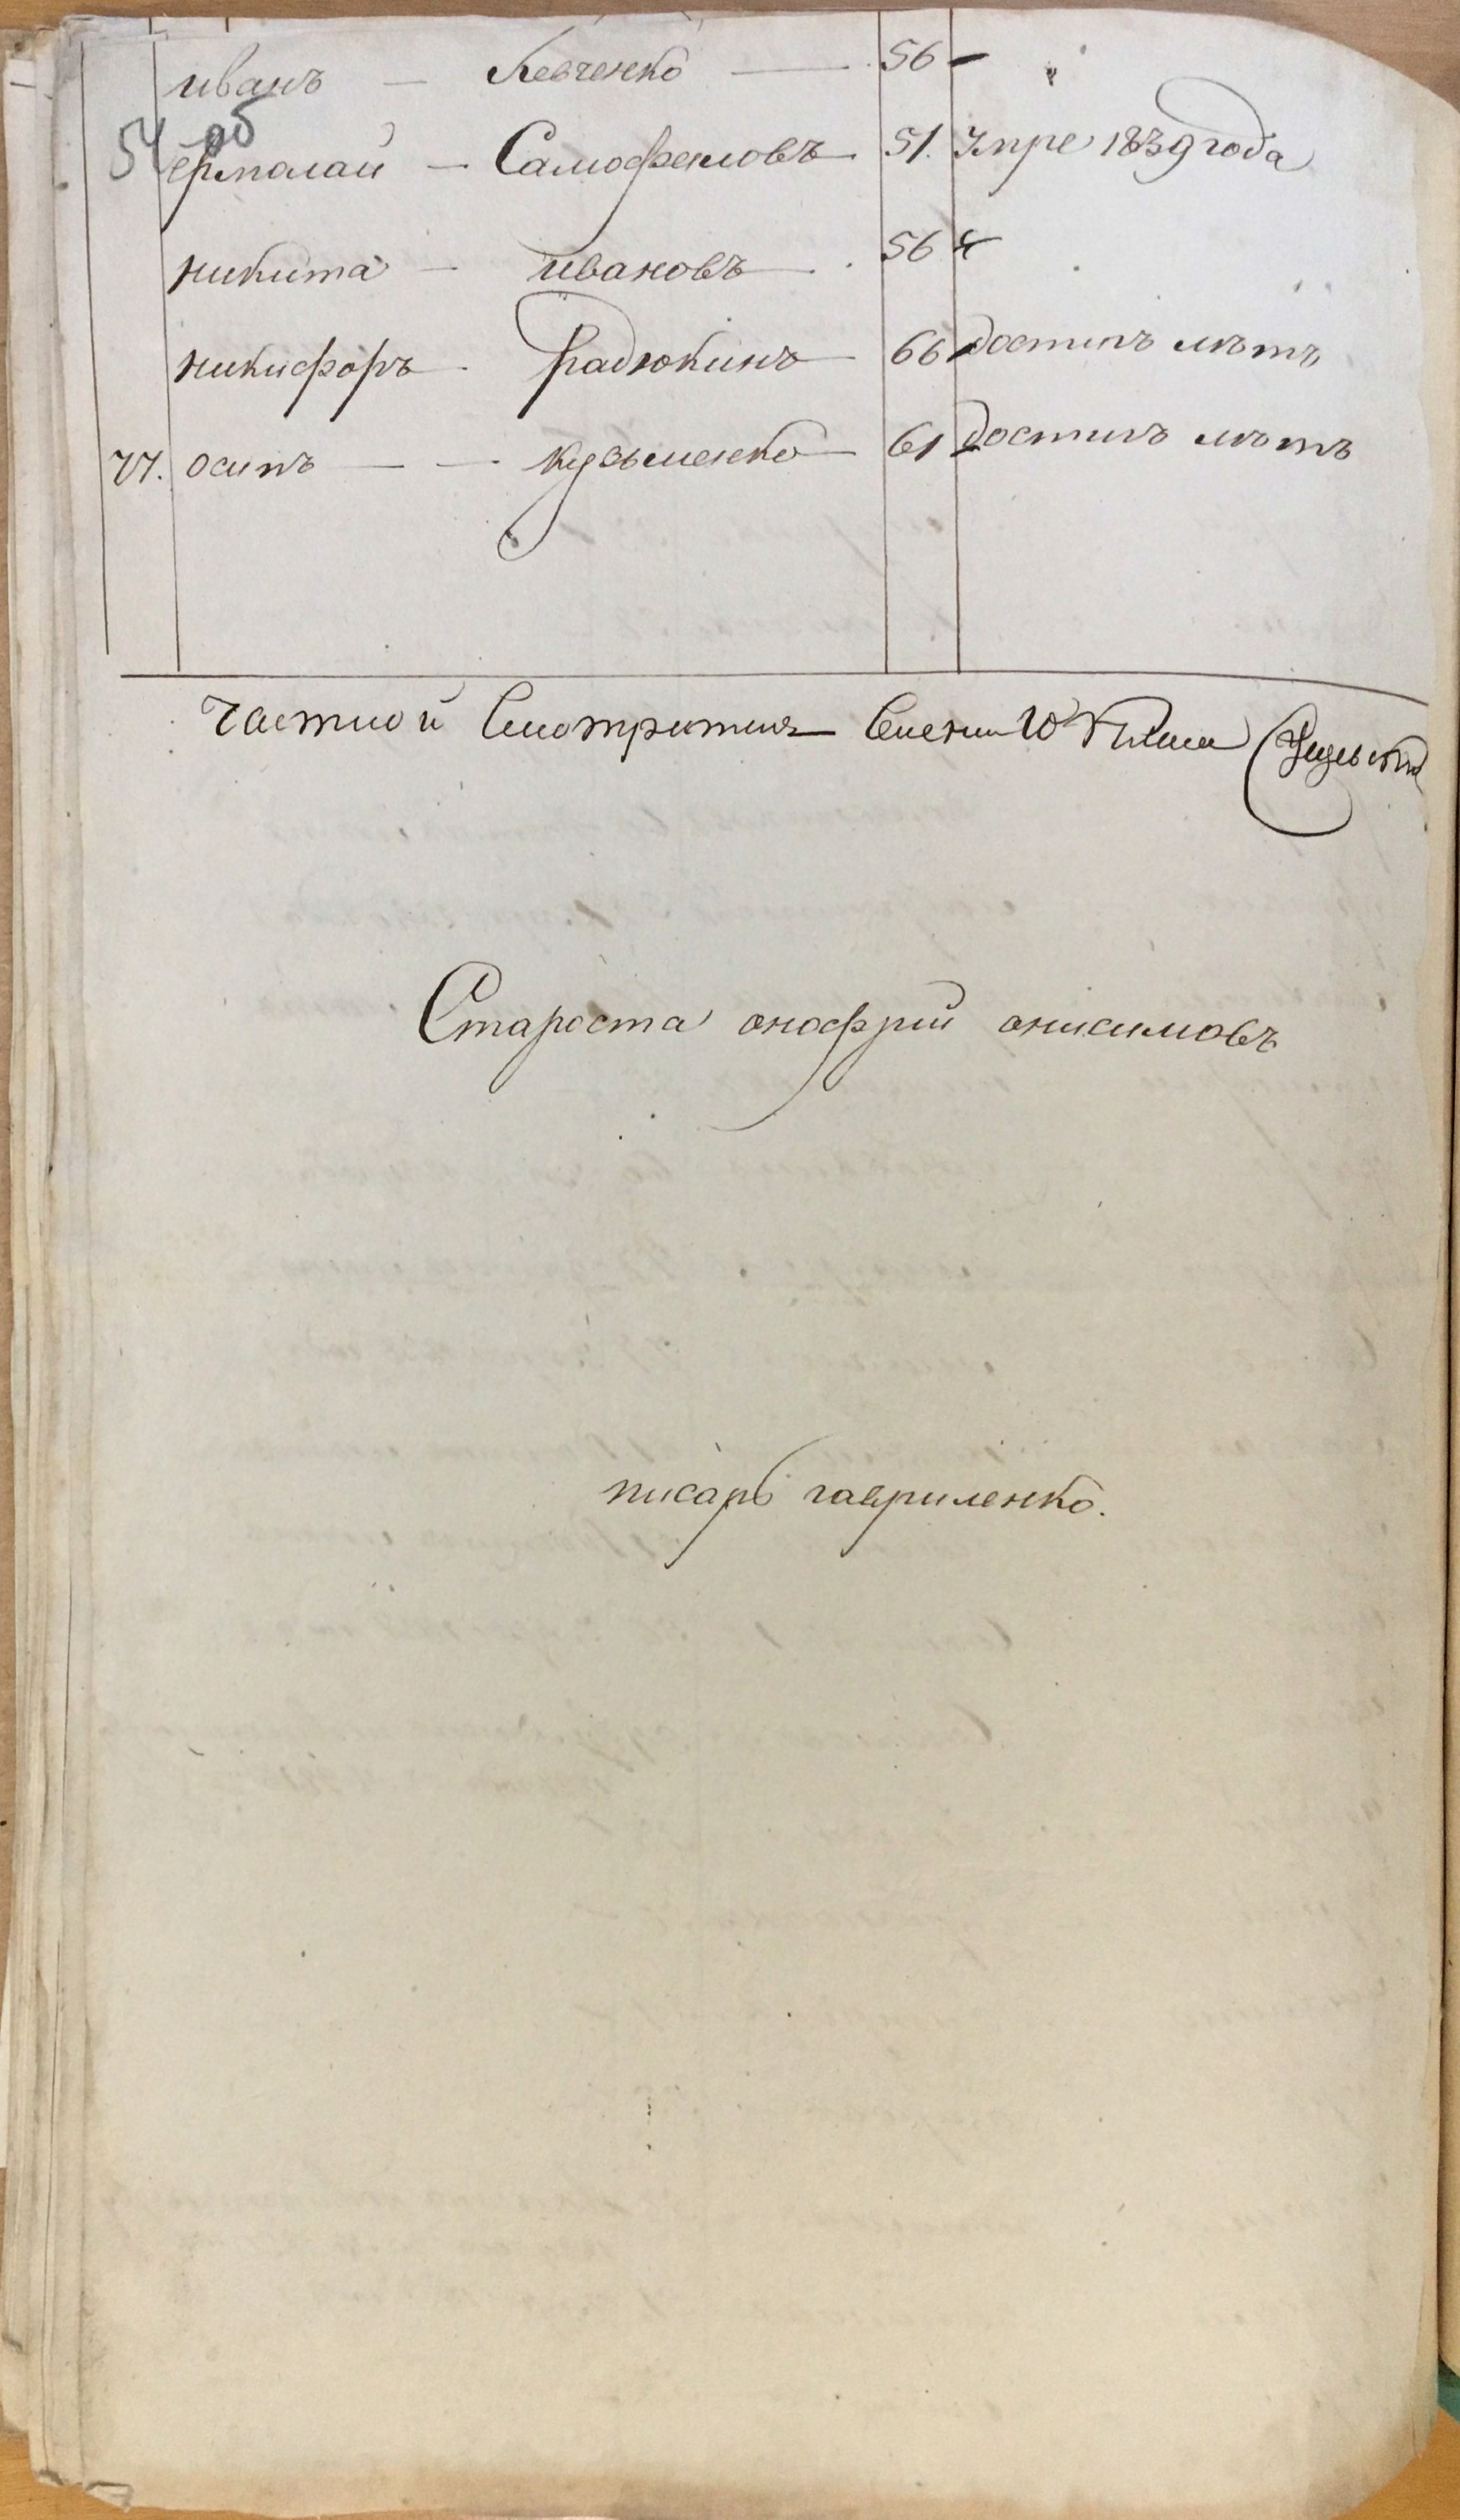 иванъ — Левченко — 56 —
54 об
ермалаи — Самофаловъ 51. Умре 1839 года
никита — ивановъ 56
никифоръ Радюкинъ — 66 достигъ лѣтъ
77. осипъ — — кузьменко — 61 достигъ лѣтъ
Частной Смотритель
Староста анофрий анисимовъ
писарь гавриленко.